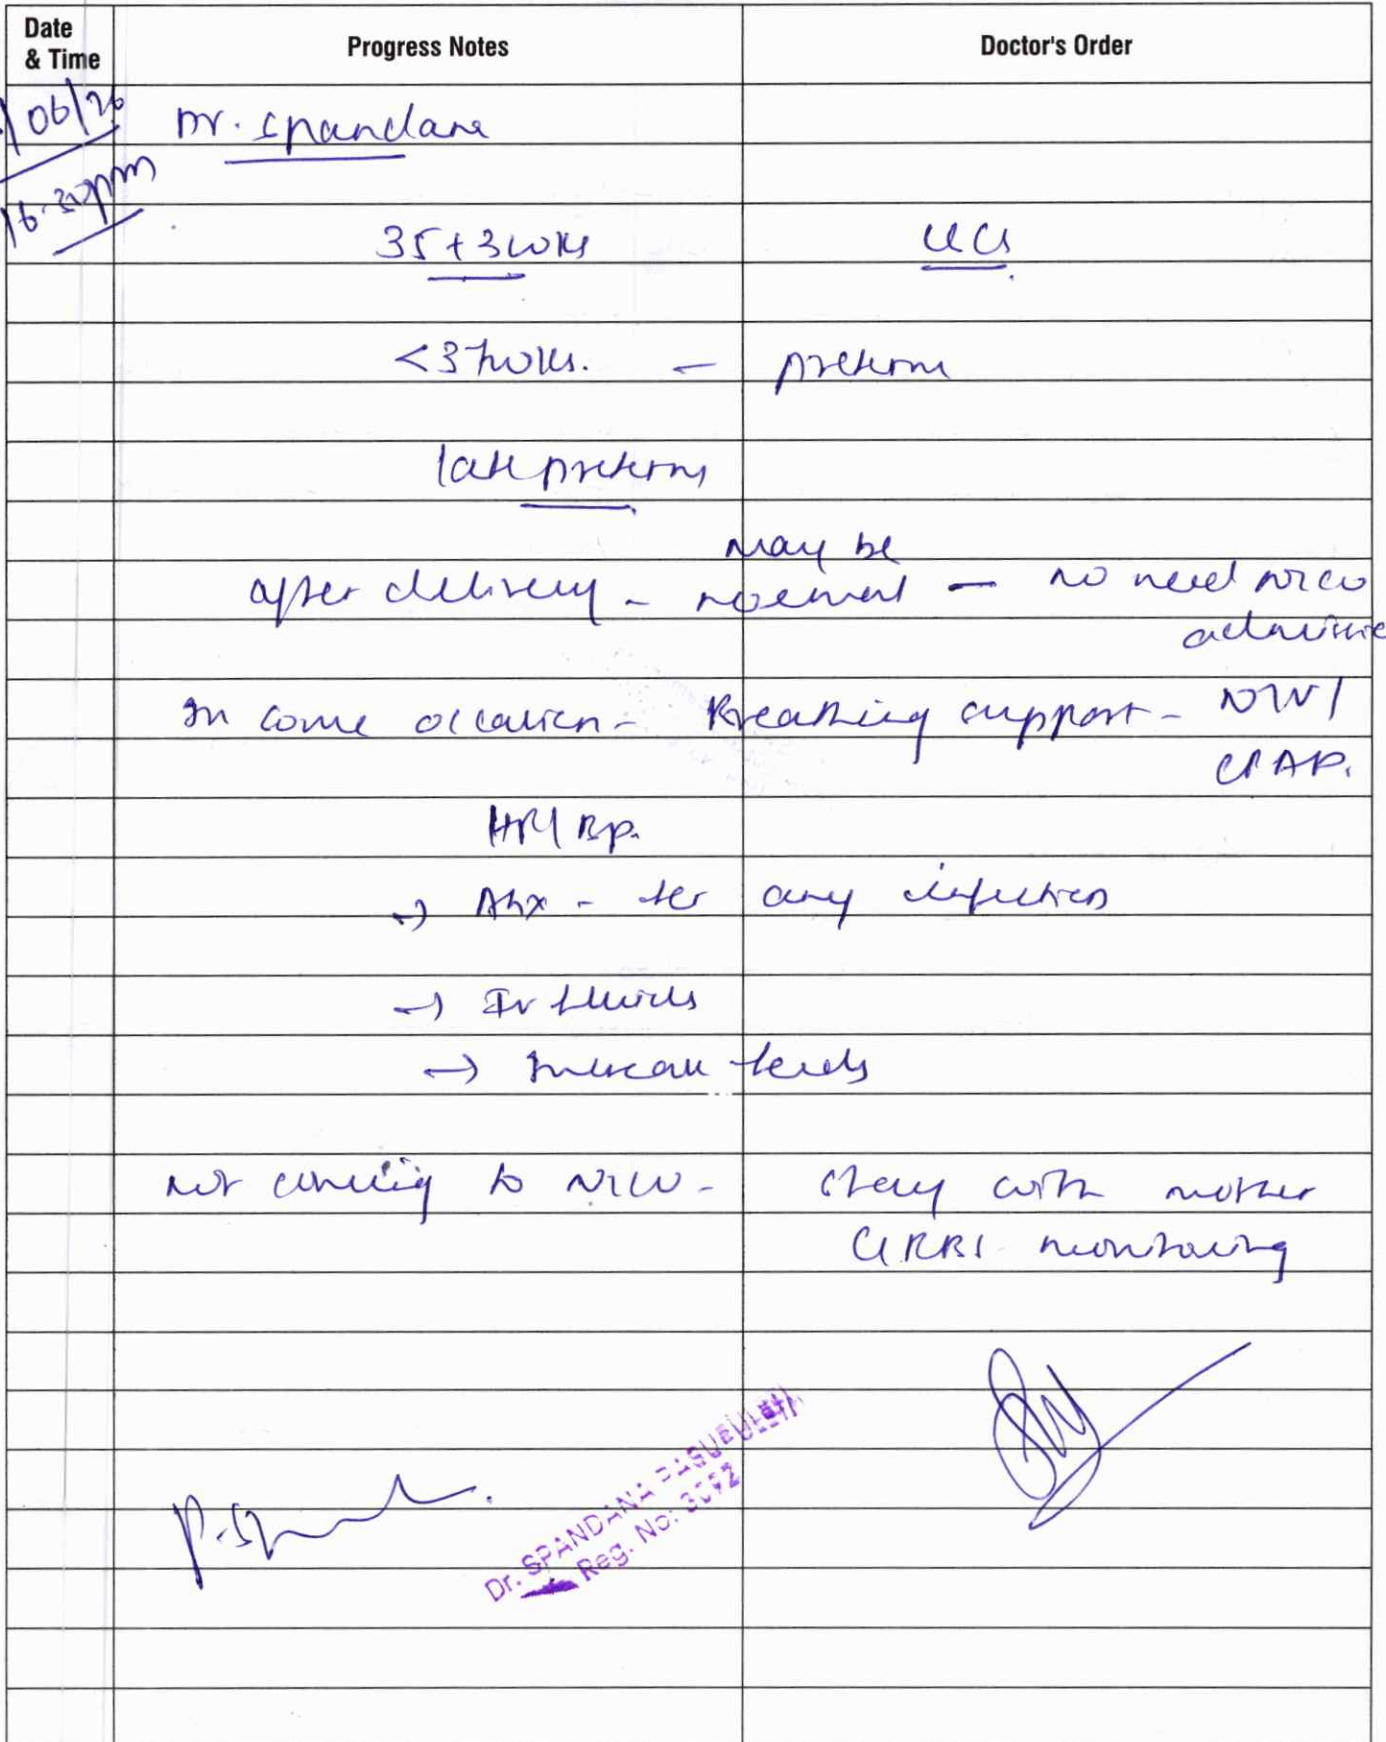 Date & Time Progress Notes Doctor's Order
/06/26 Dr. Spandana
6.30pm
35+3 wks LSCS
<37 wks. — preterm
late preterm
may be
after delivery - normal — no need NICU
In some occasion - Breathing support -
CPAP.
HR/BP.
→ Abx - for any infection
→ IV fluids
→ Increase feeds
not coming to NICU - stay with mother
GRBS monitoring
P. Sp
Dr. SPANDANA
Reg. No: